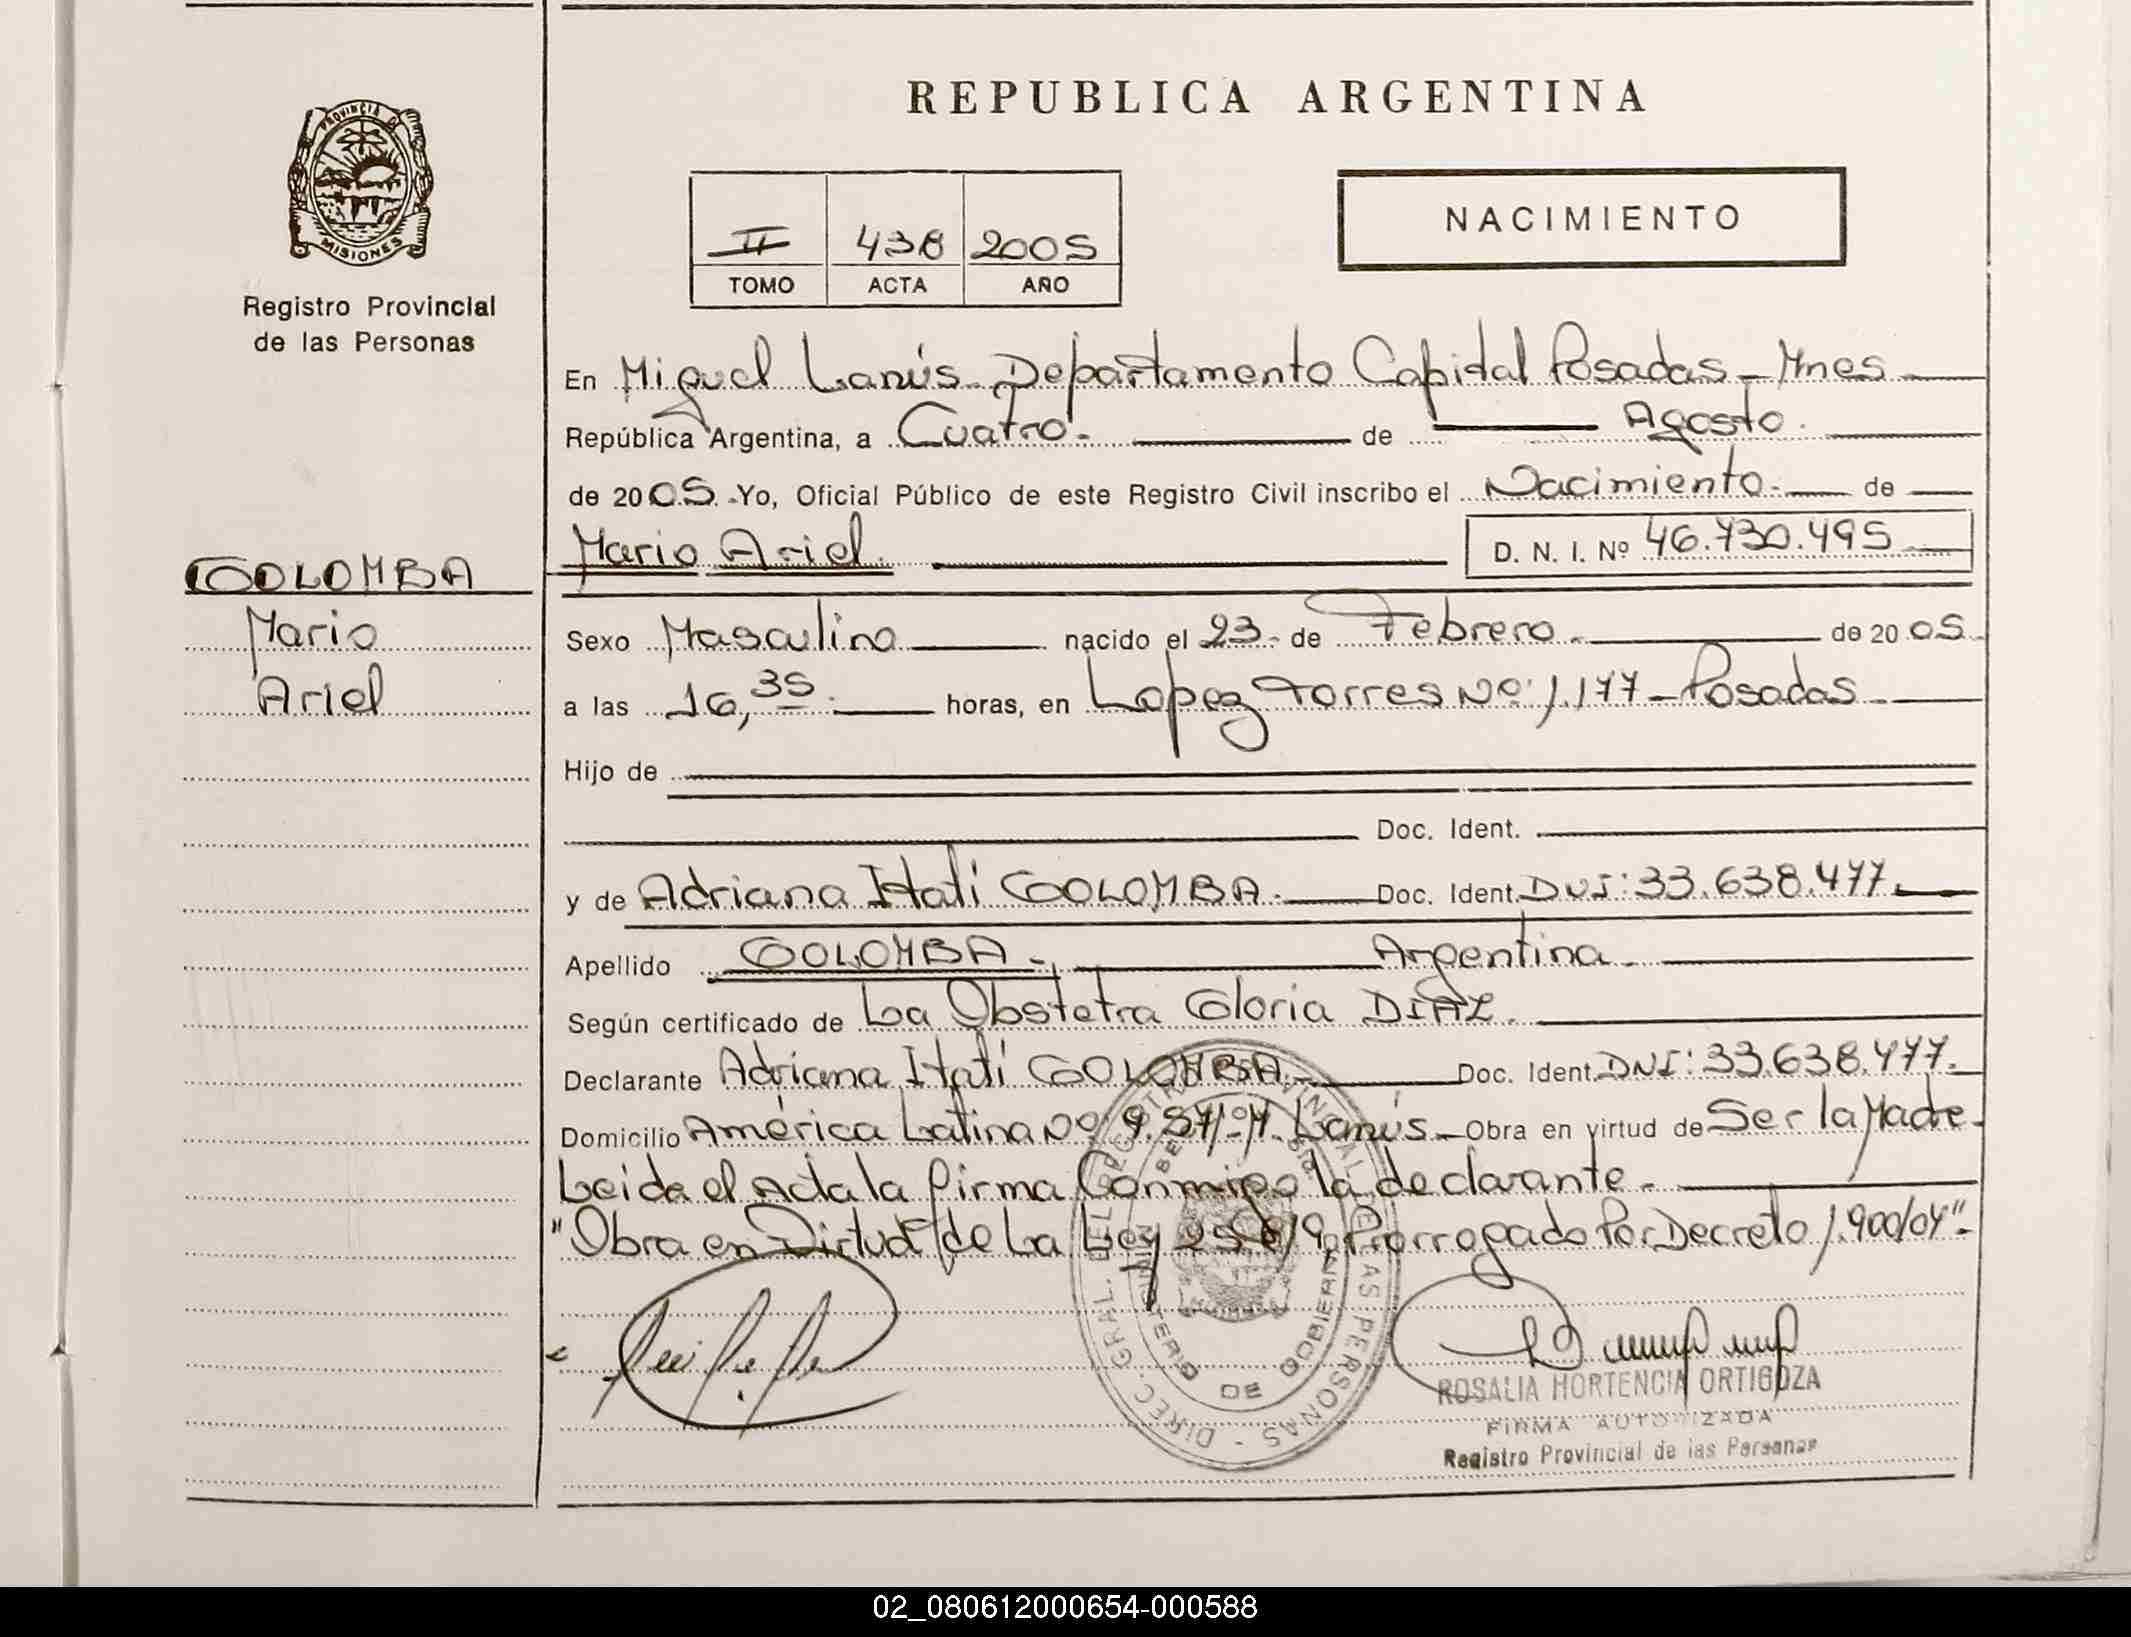 REPUBLICA ARGENTINA
PROVINCIA DE
MISIONES
Registro Provincial
de las Personas
NACIMIENTO
II 438 2005
TOMO ACTA AÑO
En Miguel Lanús Departamento Capital Posadas - Mnes
República Argentina, a Cuatro.- de Agosto.
de 2005.-Yo, Oficial Público de este Registro Civil inscribo el Nacimiento.- de
Mario Ariel. D. N. I. Nº 46.730.495
COLOMBA
Mario
Ariel
Sexo Masculino nacido el 23.- de Febrero.- de 2005.
a las 16,35.- horas, en Lopez Torres Nº: 1.177 - Posadas
Hijo de
Doc. Ident.
y de Adriana Itatí COLOMBA.- Doc. Ident. DNI: 33.638.477.
Apellido COLOMBA.- Argentina.
Según certificado de La Obstetra Gloria DIAZ.
Declarante Adriana Itatí COLOMBA.- Doc. Ident. DNI: 33.638.477.
Domicilio América Latina Nº Lanús.- Obra en virtud de Ser la Madre.
Leida el Acta la firma Conmigo la declarante.
"Obra en Virtud de La Ley Prorrogado Por Decreto 1.900/04".
DIREC. GRAL. DEL REGISTRO PROVINCIAL DE LAS PERSONAS
MINISTERIO DE GOBIERNO
ROSALIA HORTENCIA ORTIGOZA
FIRMA AUTORIZADA
Registro Provincial de las Personas
02_080612000654-000588